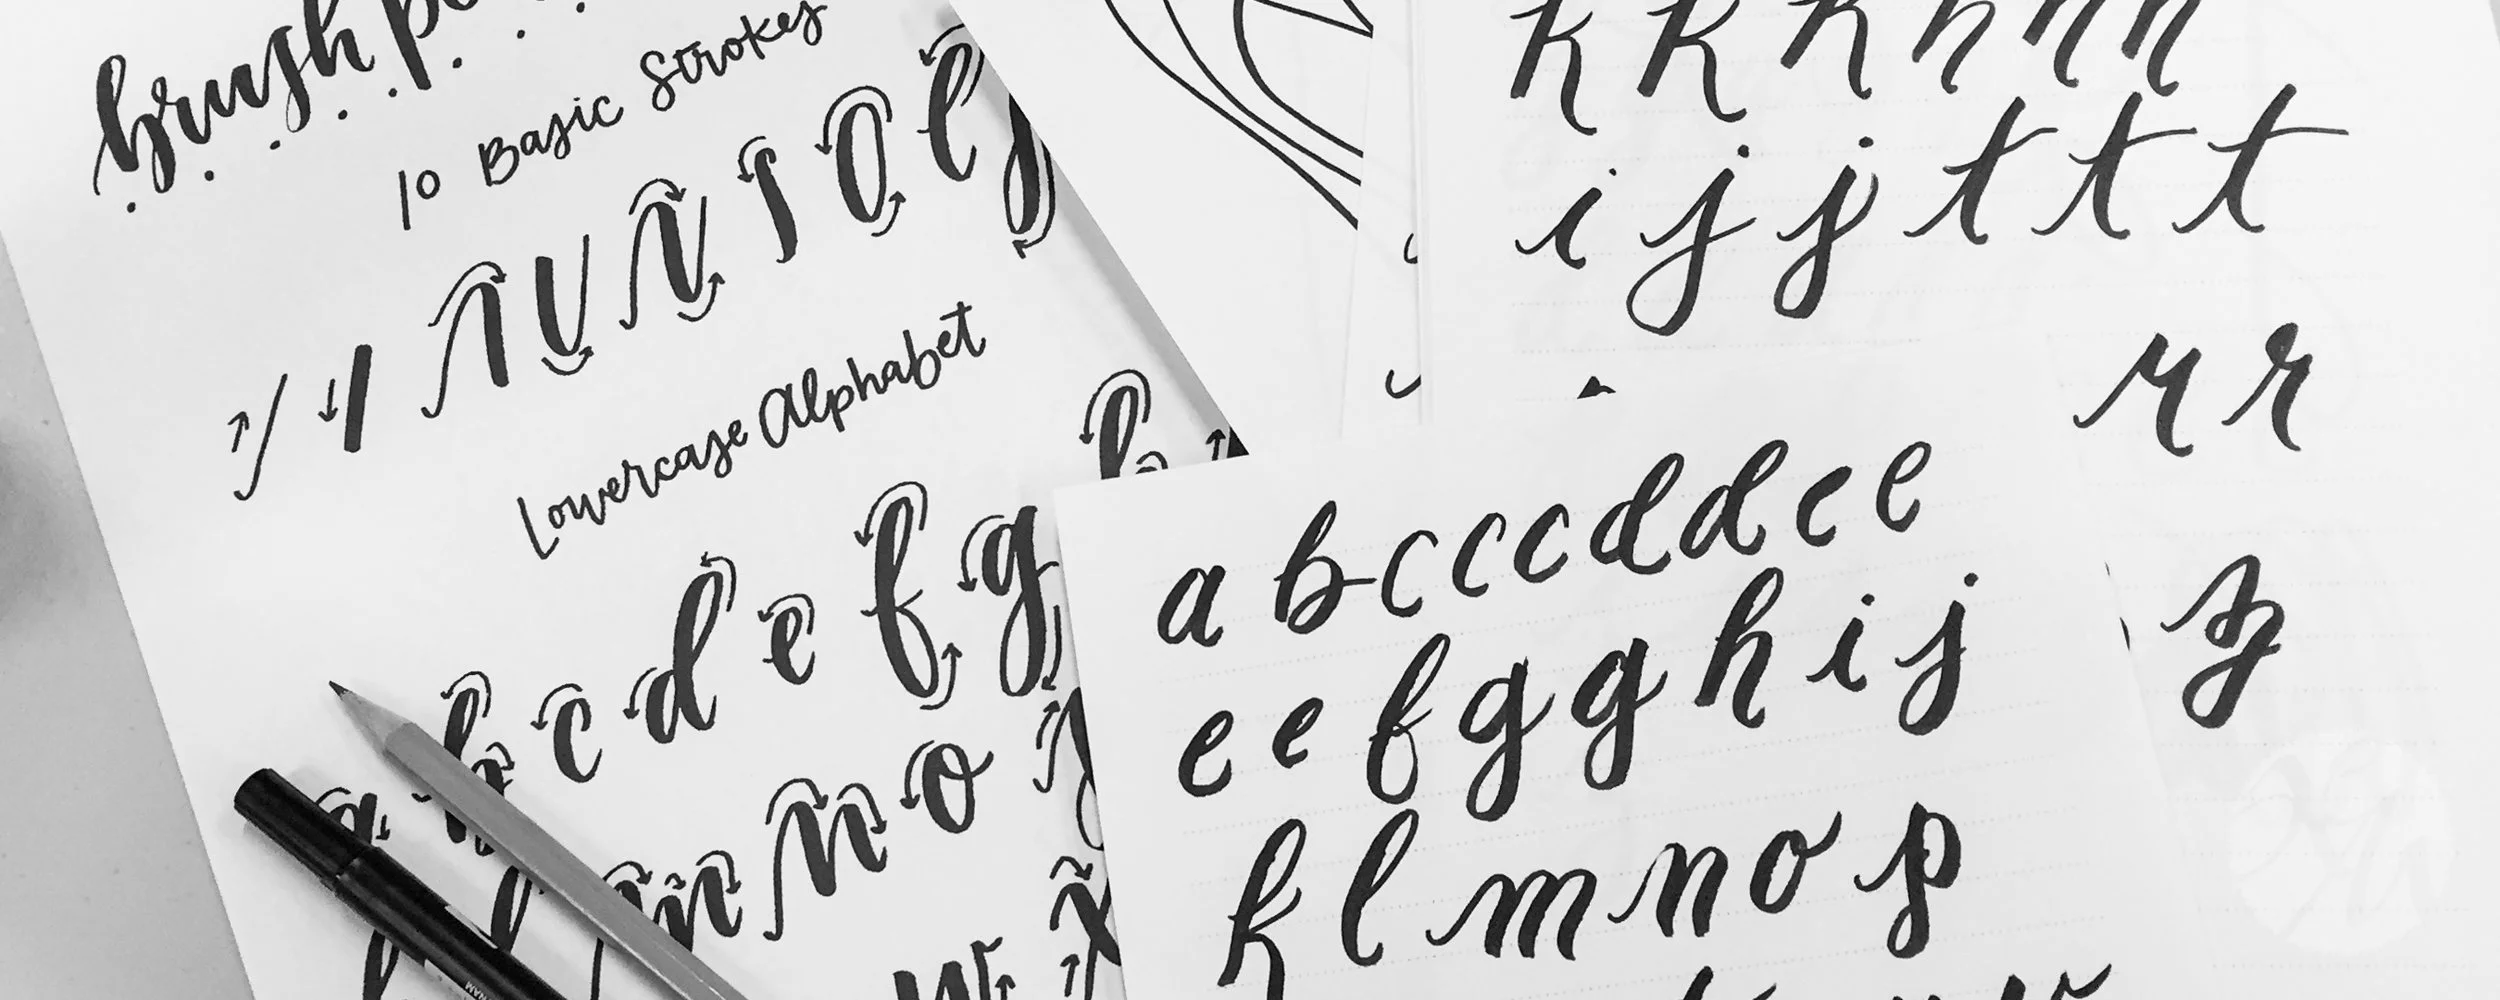 brush
10 Basic Strokes
Lowercase Alphabet
a b c d e f g
m n o
w x
k k k h n n
i j j t t t
r r
z
a b c c c d d e e
e e f g g h i j
k l m n o p